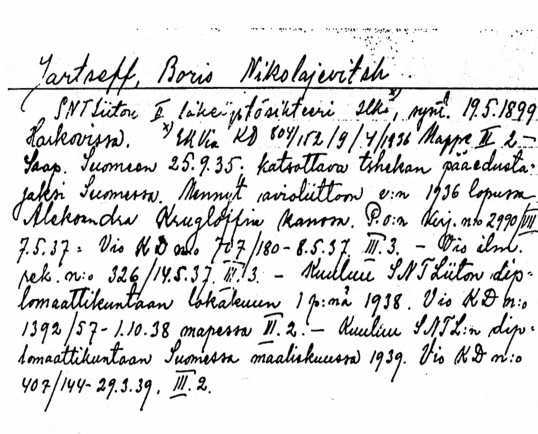 Jartseff, Boris Nikolajevitsh
SNTLiiton II lähetystösihteeri Hki, synt. 19.5.1899
Harkovissa. x) EK Via KD 804/152/9/4/1936 Mappe II 2-
Saap. Suomeen 25.9.35. katsottava tshekan pääedusta-
jaksi Suomessa. Mennyt avioliittoon v:n 1936 lopussa
Aleksandra Krugloffin kanssa. P.o:n kirj. n:o 2990/VIII
7.5.37 = Vis KD n:o 707/180-8.5.37 III.3. - Vis ilm.
rek. n:o 326/14.5.37. IV.3. - Kuuluu SNTLiiton dip-
lomaattikuntaan lokakuun 1 p:nä 1938. Vis KD n:o
1392/57-1.10.38 mapessa VI.2.- Kuuluu SNTL:n dip-
lomaattikuntaan Suomessa maaliskuussa 1939. Vis KD n:o
407/144-29.3.39. III.2.